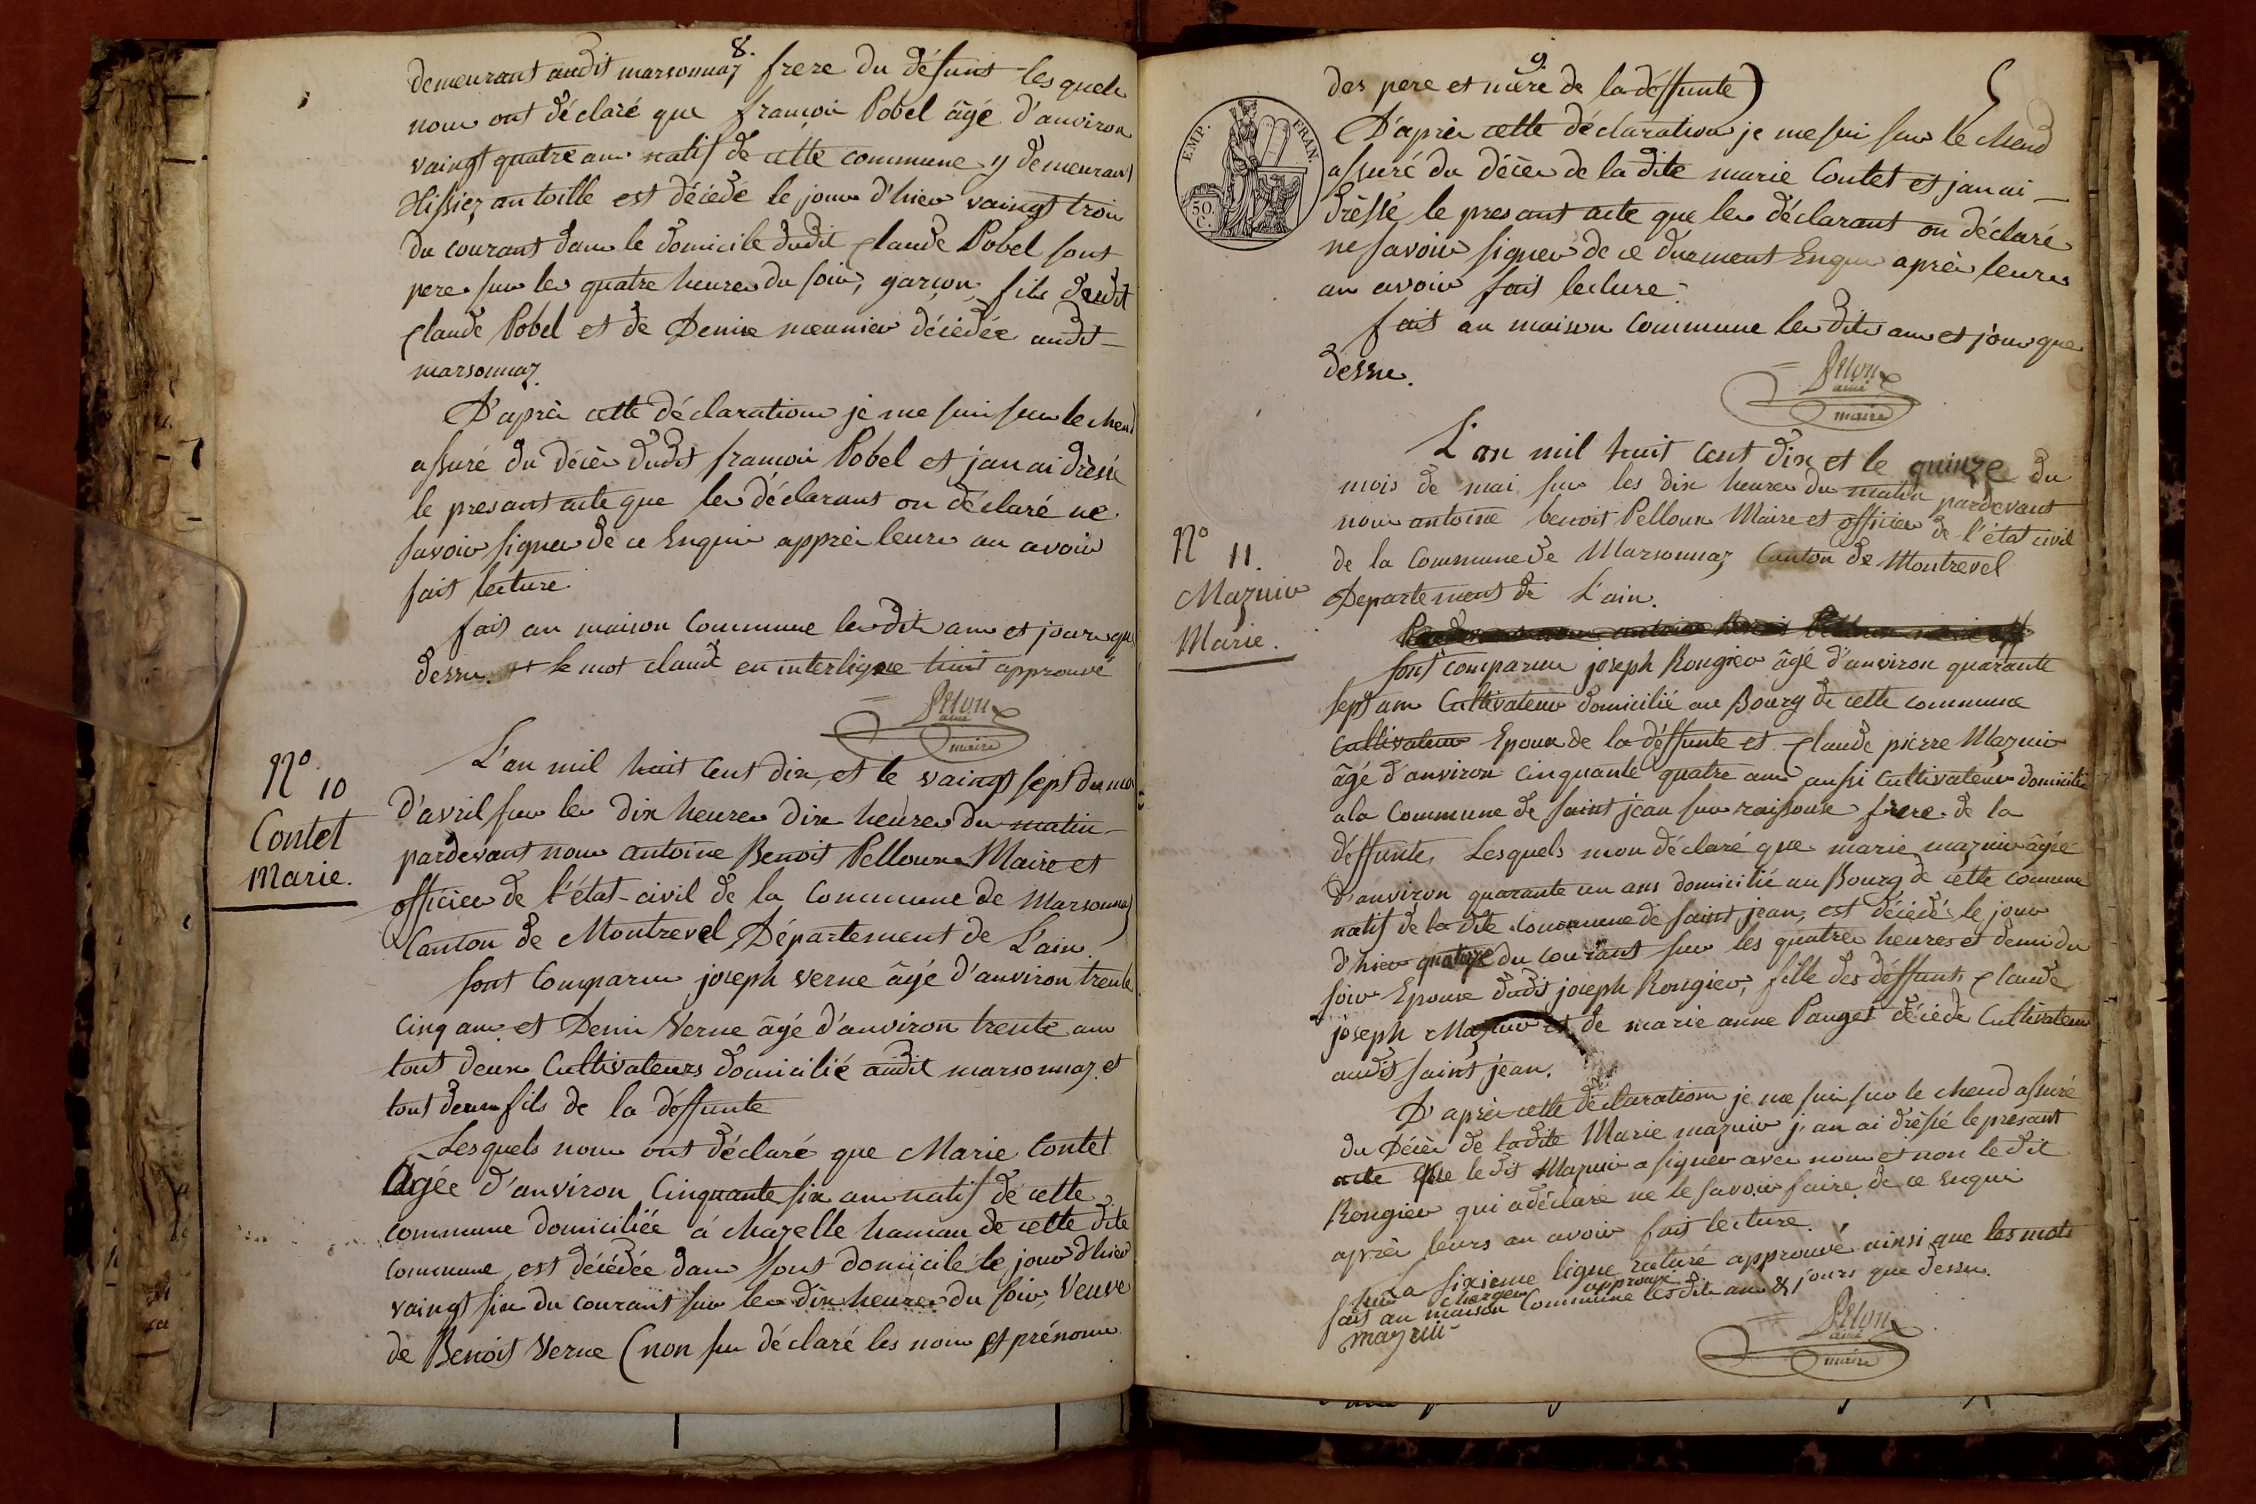 8.
demeurant audit marsonnaz frere du défunt lesquels
nous ont déclaré que françois Pobel âgé d'anviron
vaingt quatre ans natif de cette commune y demeurant
tissiez an toille est décédé le jour d'hier vaingt trois
du courant dans le domicile dudit claude Pobel sont
pere sur les quatre heures du soir, garçon fils dudit
claude Pobel et de Denise meunier décédée audit
marsonnaz.
D'après cette déclaration je me suis sur le cheud
assuré du décès dudit françois Pobel et j'an ai drèssé
le presant acte que les déclarans on déclaré ne
savoir signer de ce Enquis apprès leurs an avoir
fait lecture.
fait an maison Commune les dits ans et jours que
dessus. le mot claude en interligne huit approuvé
Pelloux
ainé
maire
N° 10
Contet
Marie.
L'an mil huit cent dix, et le vaingt sept du mois
d'avril sur les dix heures dix heures du matin
pardevant nous antoine Benoit Pelloux Maire et
officier de l'état-civil de la Commune de Marsonnaz
Canton de Montrevel, Département de L'ain.
sont Comparus joseph verne âgé d'anviron trente
cinq ans et Denis Verne âgé d'anviron trente ans
tout deux Cultivateurs domicilié audit marsonnaz et
tout deux fils de la déffunte
Lesquels nous ont déclaré que Marie Contet
Agée d'anviron Cinquante six ans natif de cette
commune domiciliée à chazelle hamau de cette dite
commune, est décédée dans sont domicile le jour d'hier
vaingt six du courant sur les dix heures du soir, Veuve
de Benoit Verne (non su déclaré les nom et prénoms
9.
5
EMP. FRAN.
50.
C.
des pere et mère de la déffunte)
D'après cette déclaration je me suis sur le cheud
assuré du décès de la dite marie Contet et j'an ai
drèssé le presant acte que les déclarant on déclaré
ne savoir signer de ce durment Enquis après leurs
an avoir fait lecture.
fait an maison commune les dits ans et jour que
dessus.
Pelloux
ainé
maire
N° 11.
Mazuir
Marie.
L'an mil huit cent dix et le quinze du
mois de mai sur les dix heures du matin pardevant
nous antoine benoit Pelloux Maire et officier de l'état civil
de la Commune de Marsonnaz Canton de Montrevel
Departement de L'ain.
sont comparus joseph Rongier âgé d'anviron quarante
sept ans Cultivateur domicilié au Bourg de cette commune
cultivateur Epoux de la déffunte et claude pierre Mazuir
âgé d'anviron cinquante quatre ans aussi Cultivateur domicilié
a la Commune de saint jean sur raissouse frere de la
déffunte. Lesquels m'on déclaré que marie mazuir âgée
d'anviron quarante un ans domicilié au Bourg de cette comune
natif de la dite commune de saint jean, est décédé le jour
d'hier quatorze du courant sur les quatre heures et demi du
soir Epouse dudit joseph Rongier, fille des déffunts claude
joseph Mazuir et de marie anne Pauget décédé Cultivateur
audit saint jean.
D'après cette déclaration je me suis sur le cheud assuré
du Décès de ladite Marie mazuir j'an ai drèssé le présant
acte que le dit Mazuir a signer avec nous et non le dit
Rongier qui a déclaré ne le savoir faire de ce Enquis
après leurs an avoir fait lecture.
La sixieme ligne raturé approuvé ainsi que les mots
approuvé
fait an maison Commune les dits ans & jours que dessus.
mazuir
Pelloux
ainé
maire